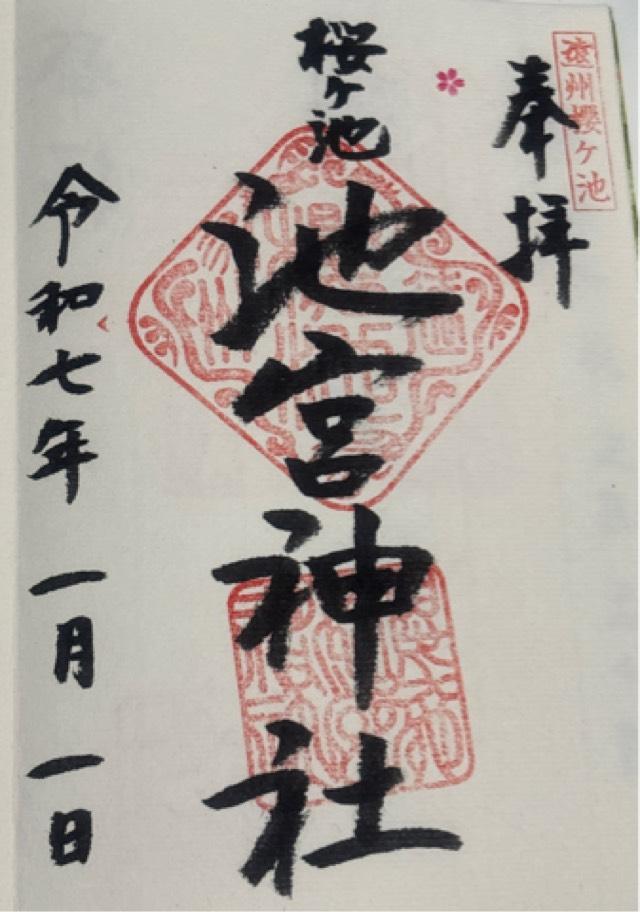 遠州櫻ケ池
奉拝
桜ヶ池
池宮神社
令和七年 一月 一日